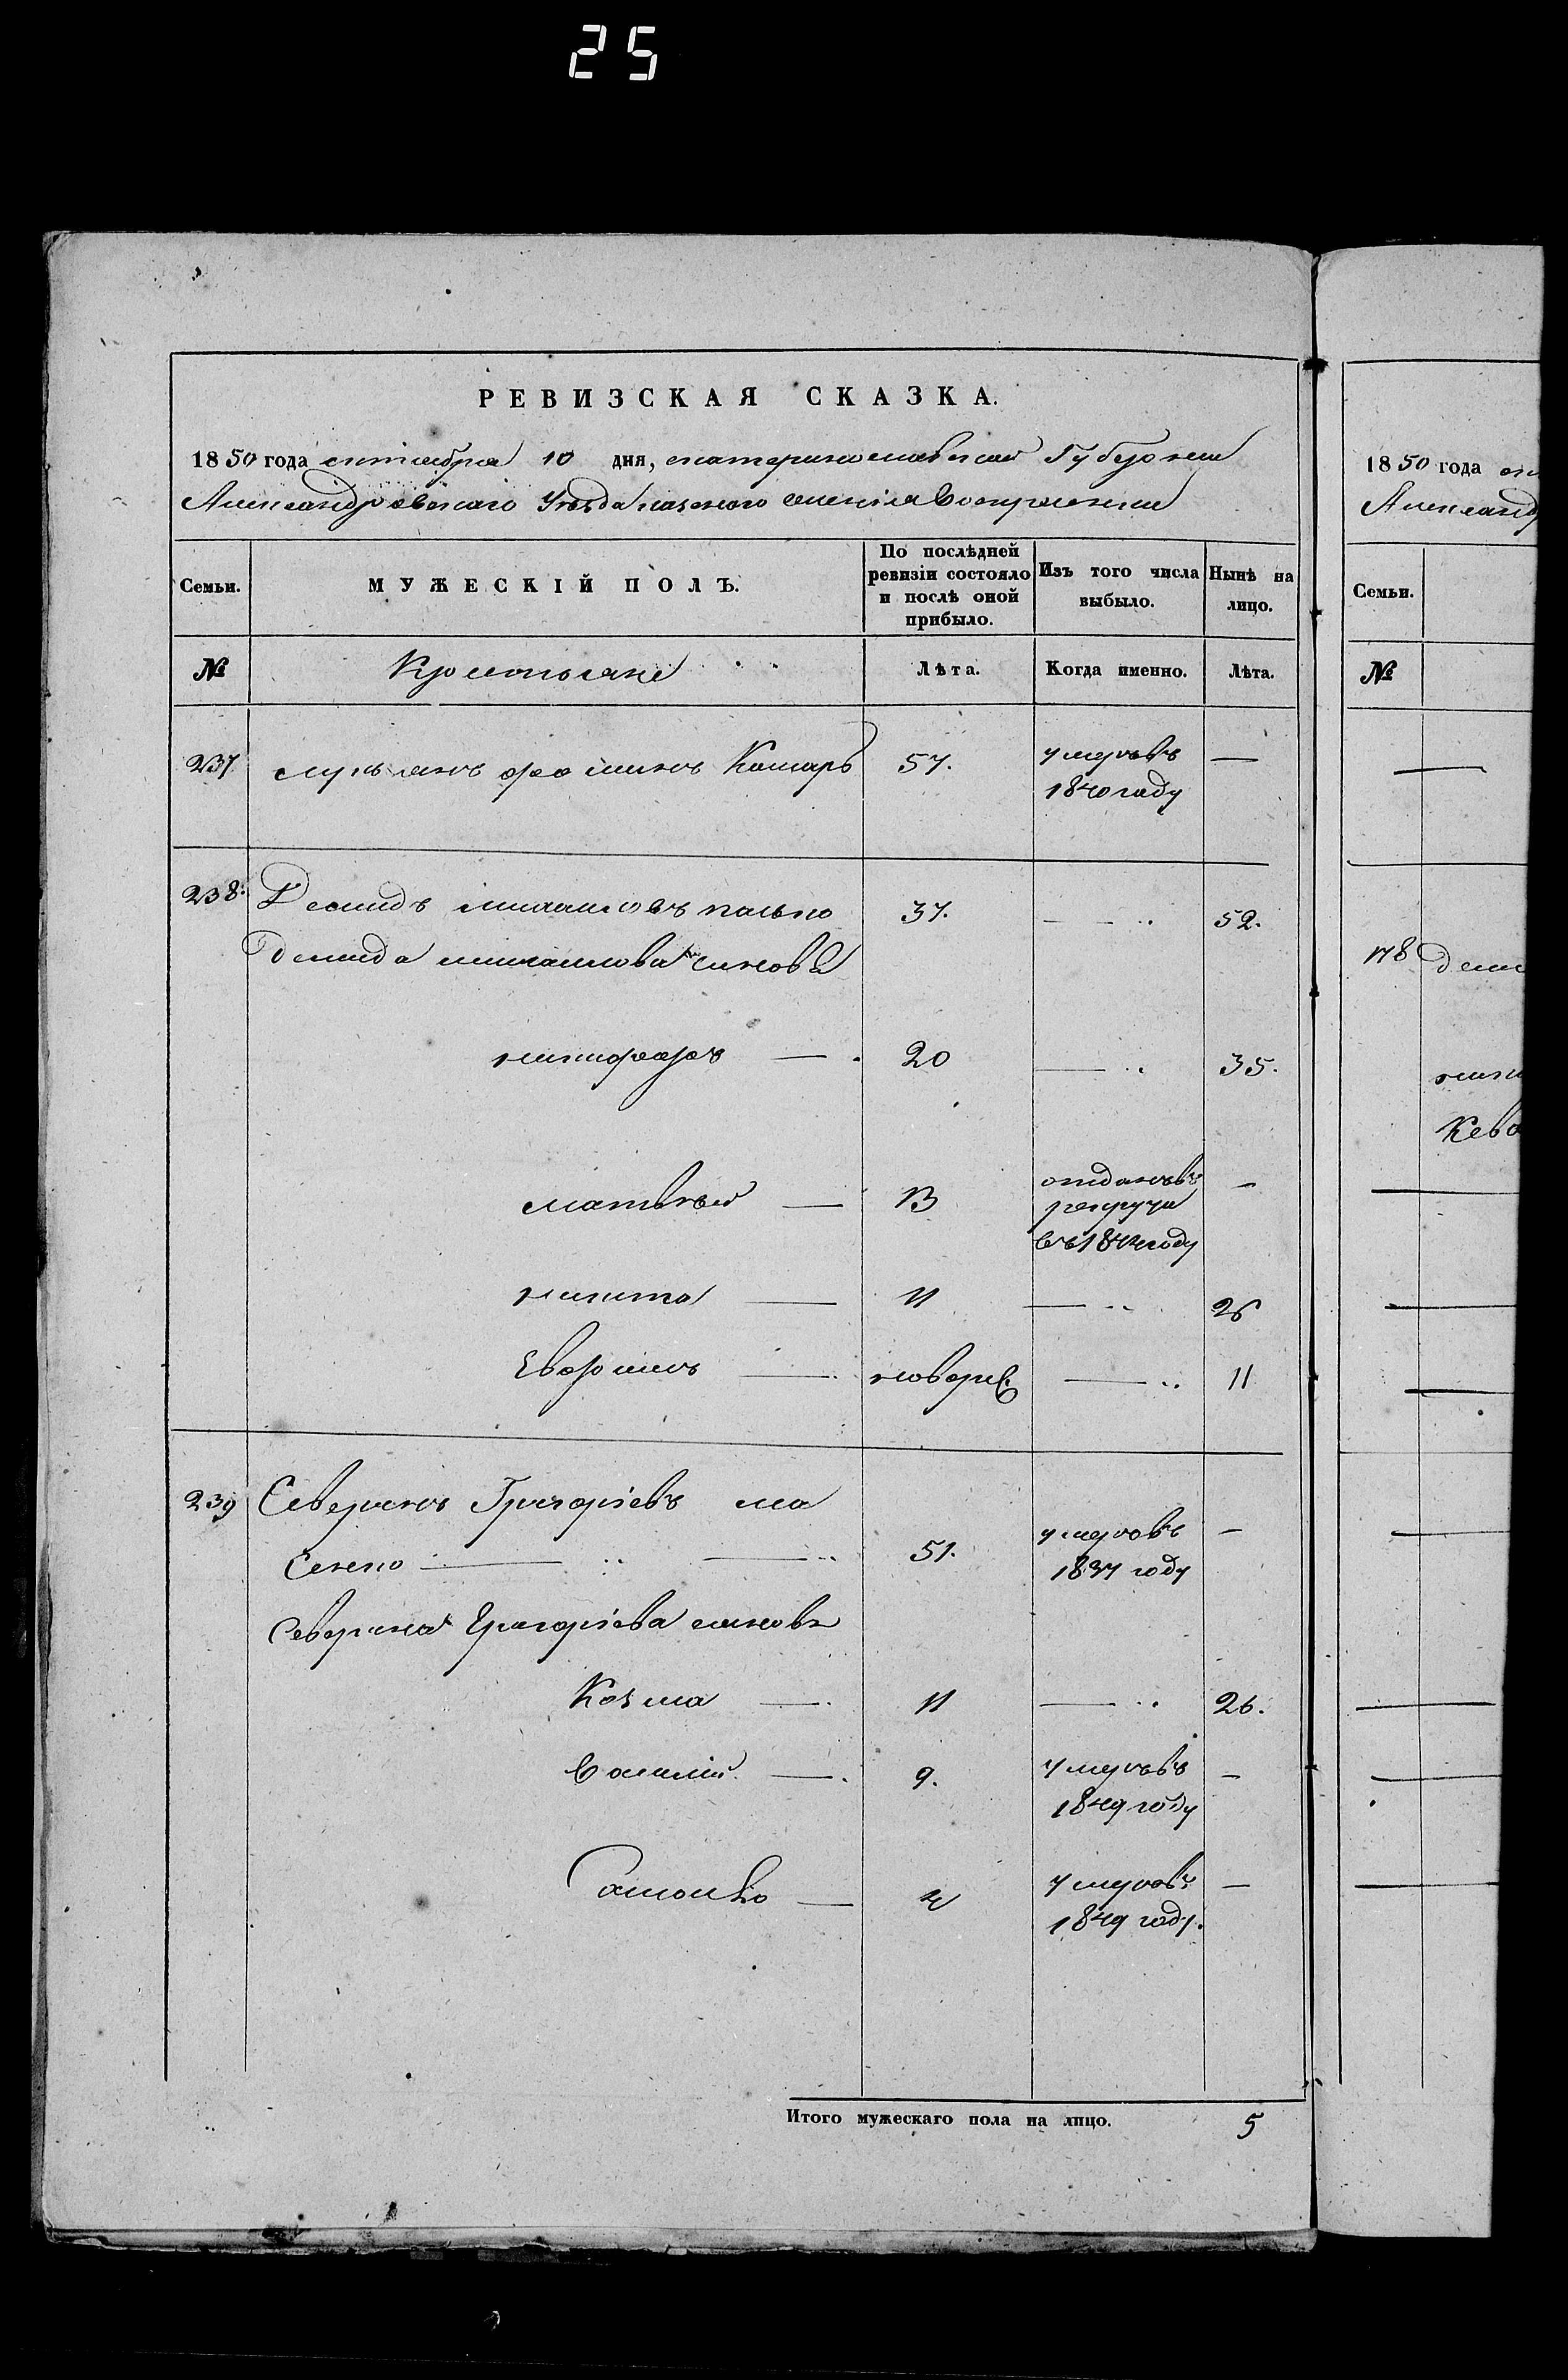 25
РЕВИЗСКАЯ СКАЗКА.
1850 года сентября 10 дня, екатеринославской Губернии
Александровскаго Уезда казенного селения Воскресенки
Семьи.
МУЖЕСКІЙ ПОЛЪ.
По послѣдней ревизіи состояло и послѣ оной прибыло.
Изъ того числа выбыло.
Нынѣ на лицо.
№
Лѣта.
Когда именно.
Лѣта.
237 Комаръ 57. умръ въ —
1840 году
238. Демидъ михаиловъ 37. — 52.
Демида михаилова синовя
никифоръ — 20 — 35.
матвей — 13 отданъ въ —
рекруты
въ 1842 году
никита — 11 — 26
Ефимъ — новорж — 11
239 Северинъ Григоріевъ
51. умръ въ —
1837 году
Северина Григоріева синовя
Козма — 11 — 26.
Василій — 9. умръ въ —
1849 году
4 умръ въ —
1849 году.
Итого мужескаго пола на лицо. 5
1850 года
Александ
Семьи.
№
178 деми
Кево